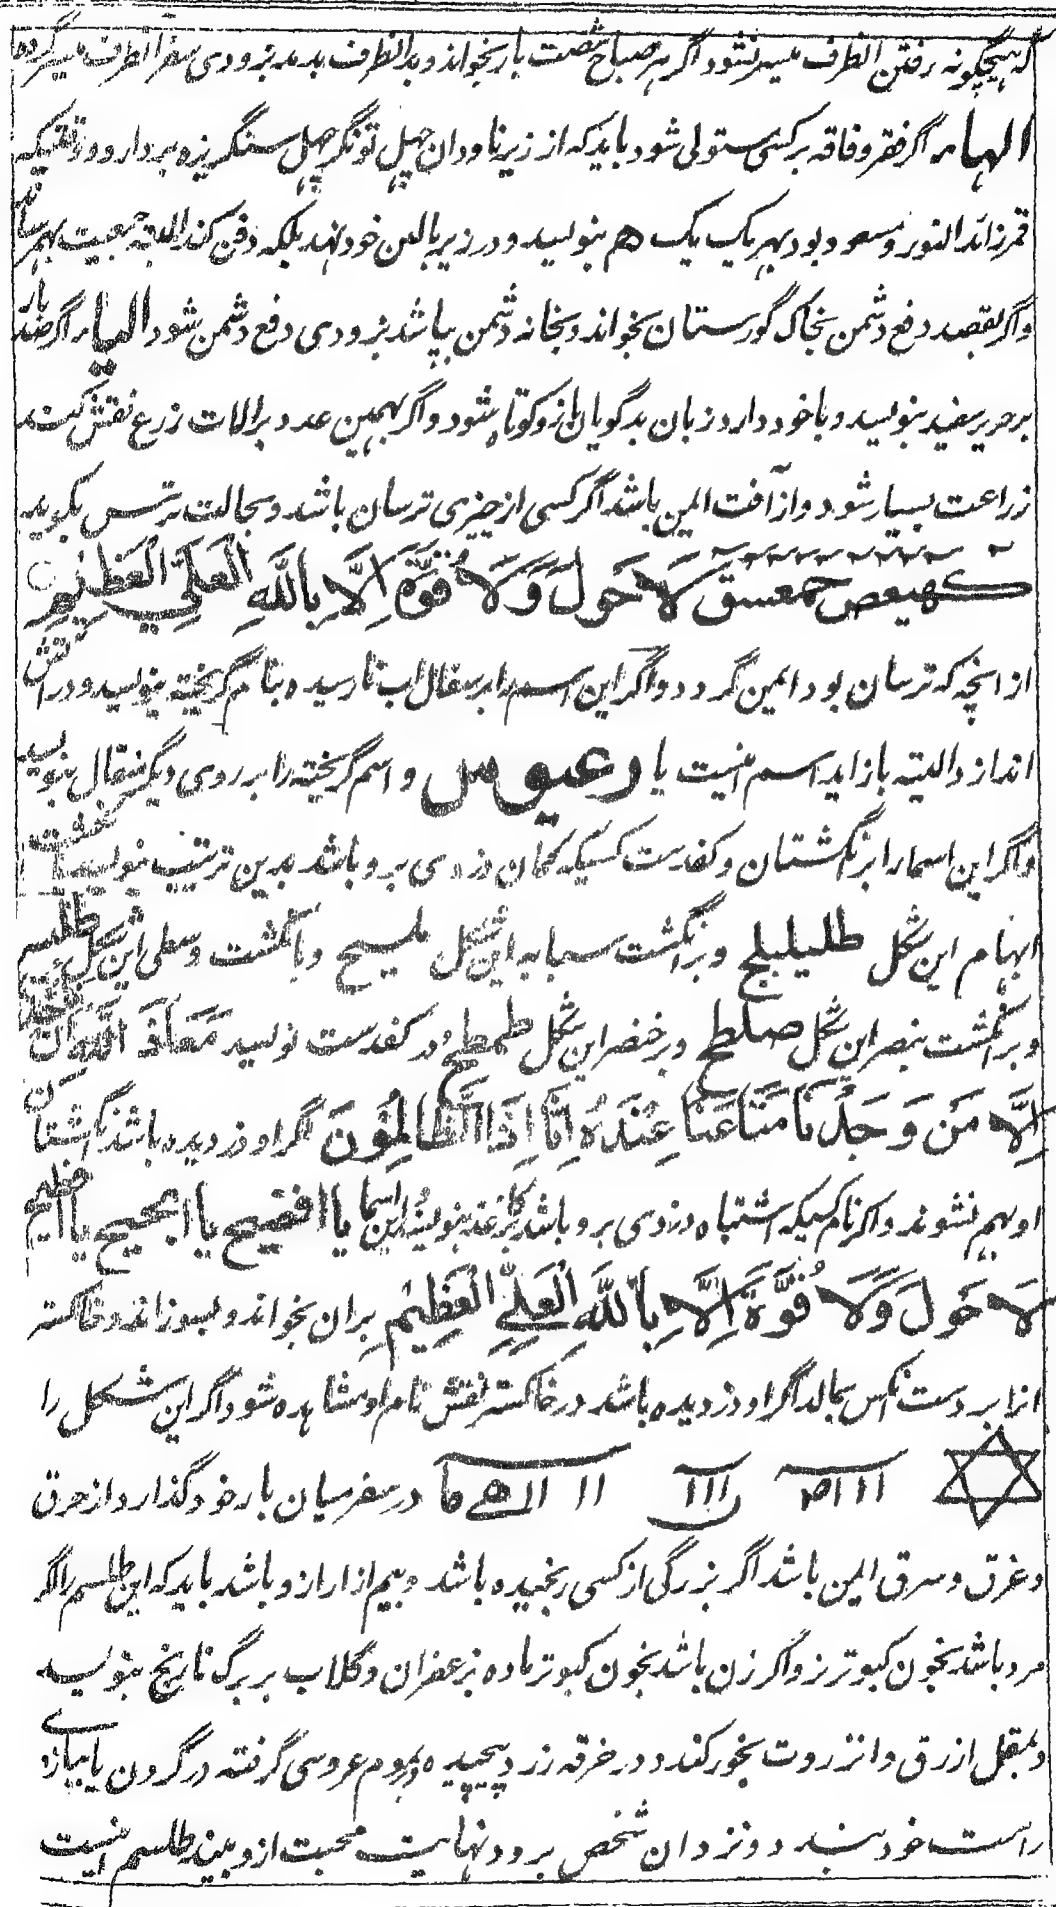 که هیچگونه رفتن الطرف میسر نشود اگر هر صباح شصت بار بخواند و بدالطرف بدمد بزودی سفر انطرف میسر گردد
الهاء اگر فقر و فاقه بر کسی مستولی شود باید که از زیر ناودان چهل تونگر چهل سنگریزه بردارد و وقتیکه
قمر زائد النور و مسعود بود بهر یک یک هم بنویسد و در زیر بالین خود نهد بلکه دفن کند البته جمعیت بهم رساند
و اگر بقصد دفع دشمن بخاک گورستان بخواند و بخانه دشمن بپاشد بزودی دفع دشمن شود الیاء اگر صد بار
بر حریر سفید بنویسد و با خود دارد زبان بدگویان ازو کوتاه شود و اگر بهمین عدد بر الات زرع نقش کنند
زراعت بسیار شود و از آفت ایمن باشد اگر کسی از چیزی ترسان باشد و بحالت ترس بگوید
كهيعص حمعسق لَا حَولَ وَلَا قُوَّةَ اِلَّا بِاللّٰهِ العَلِيِّ العَظِيمِ
از انچه که ترسان بود ایمن گردد و اگر این اسم را بر سفال اب نارسیده بنام گریخته بنویسد و در اتش
اندازد البته باز اید اسم اینست یا رعیوس و اسم گریخته را بر روی دیگر سفال بنویسد
و اگر این اسما را بر انگشتان و کفدست کسیکه گمان دزدی برو باشد بدین ترتیب بنویسد بانگشت
ابهام این شکل طلیلیلج و بر انگشت سبابه این شکل ملسیح و بانگشت وسطی این شکل
و بر انگشت بنصر این شکل صلطح و بر خنصر این شکل طمطح و در کفدست نویسد مَعَاذَ اللّٰهِ اَن
اِلَّا مَن وَجَدنَا مَتَاعَنَا عِندَهُ اِنَّا اِذًا لَّظَالِمُونَ اگر او دزدیده باشد انگشتان
او بهم نشوند و اگر نام کسیکه اشتباه دزدی برو باشد بکاغذ بنویسد این اسما یا افضیح یا ابحیح یا
لَا حَولَ وَلَا قُوَّةَ اِلَّا بِاللّٰهِ العَلِيِّ العَظِيمِ بران بخواند و بسوزاند و خاکستر
انرا بر دست انکس بمالد اگر او دزدیده باشد در خاکستر نقش نام او مشاهده شود اگر این شکل را
در سفر میان بار خود گذارد از حرق
و غرق و سرق ایمن باشد اگر بزرگی از کسی رنجیده باشد و بیم از ازار ازو باشد باید که این طلسم را اگر
مرد باشد بخون کبوتر نر و اگر زن باشد بخون کبوتر ماده بزعفران و گلاب بر برگ نارنج بنویسد
و بمقل ازرق و انزروت بخور کند و در خرقه زرد پیچیده و بموم عروسی گرفته در گردن یا ببازوی
راست خود بندد و نزد ان شخص برود نهایت محبت ازو بیند طلسم اینست